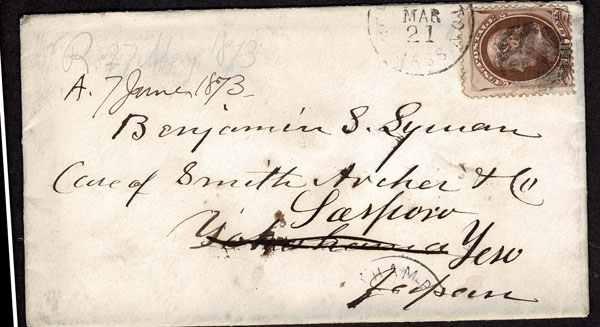 MAR
21
MASS
R 27 May 1873
A. 7 June 1873
Benjamin S. Lyman
Care of Smith Archer & Co
Sapporo
Yokohama Yeso
HAM
Japan